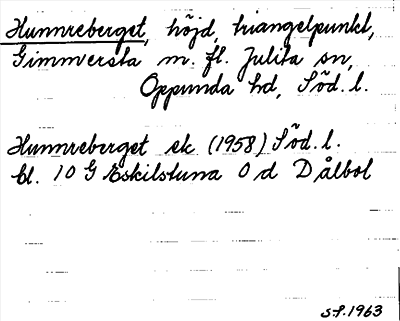 Hunnreberget, höjd, triangelpunkt,
Gimmersta m. fl. Julita sn,
Oppunda hd, Söd. l.
Hunnreberget ek (1958) Söd. l.
bl. 10 G Eskilstuna 0 d Dålbol
s.f. 1963